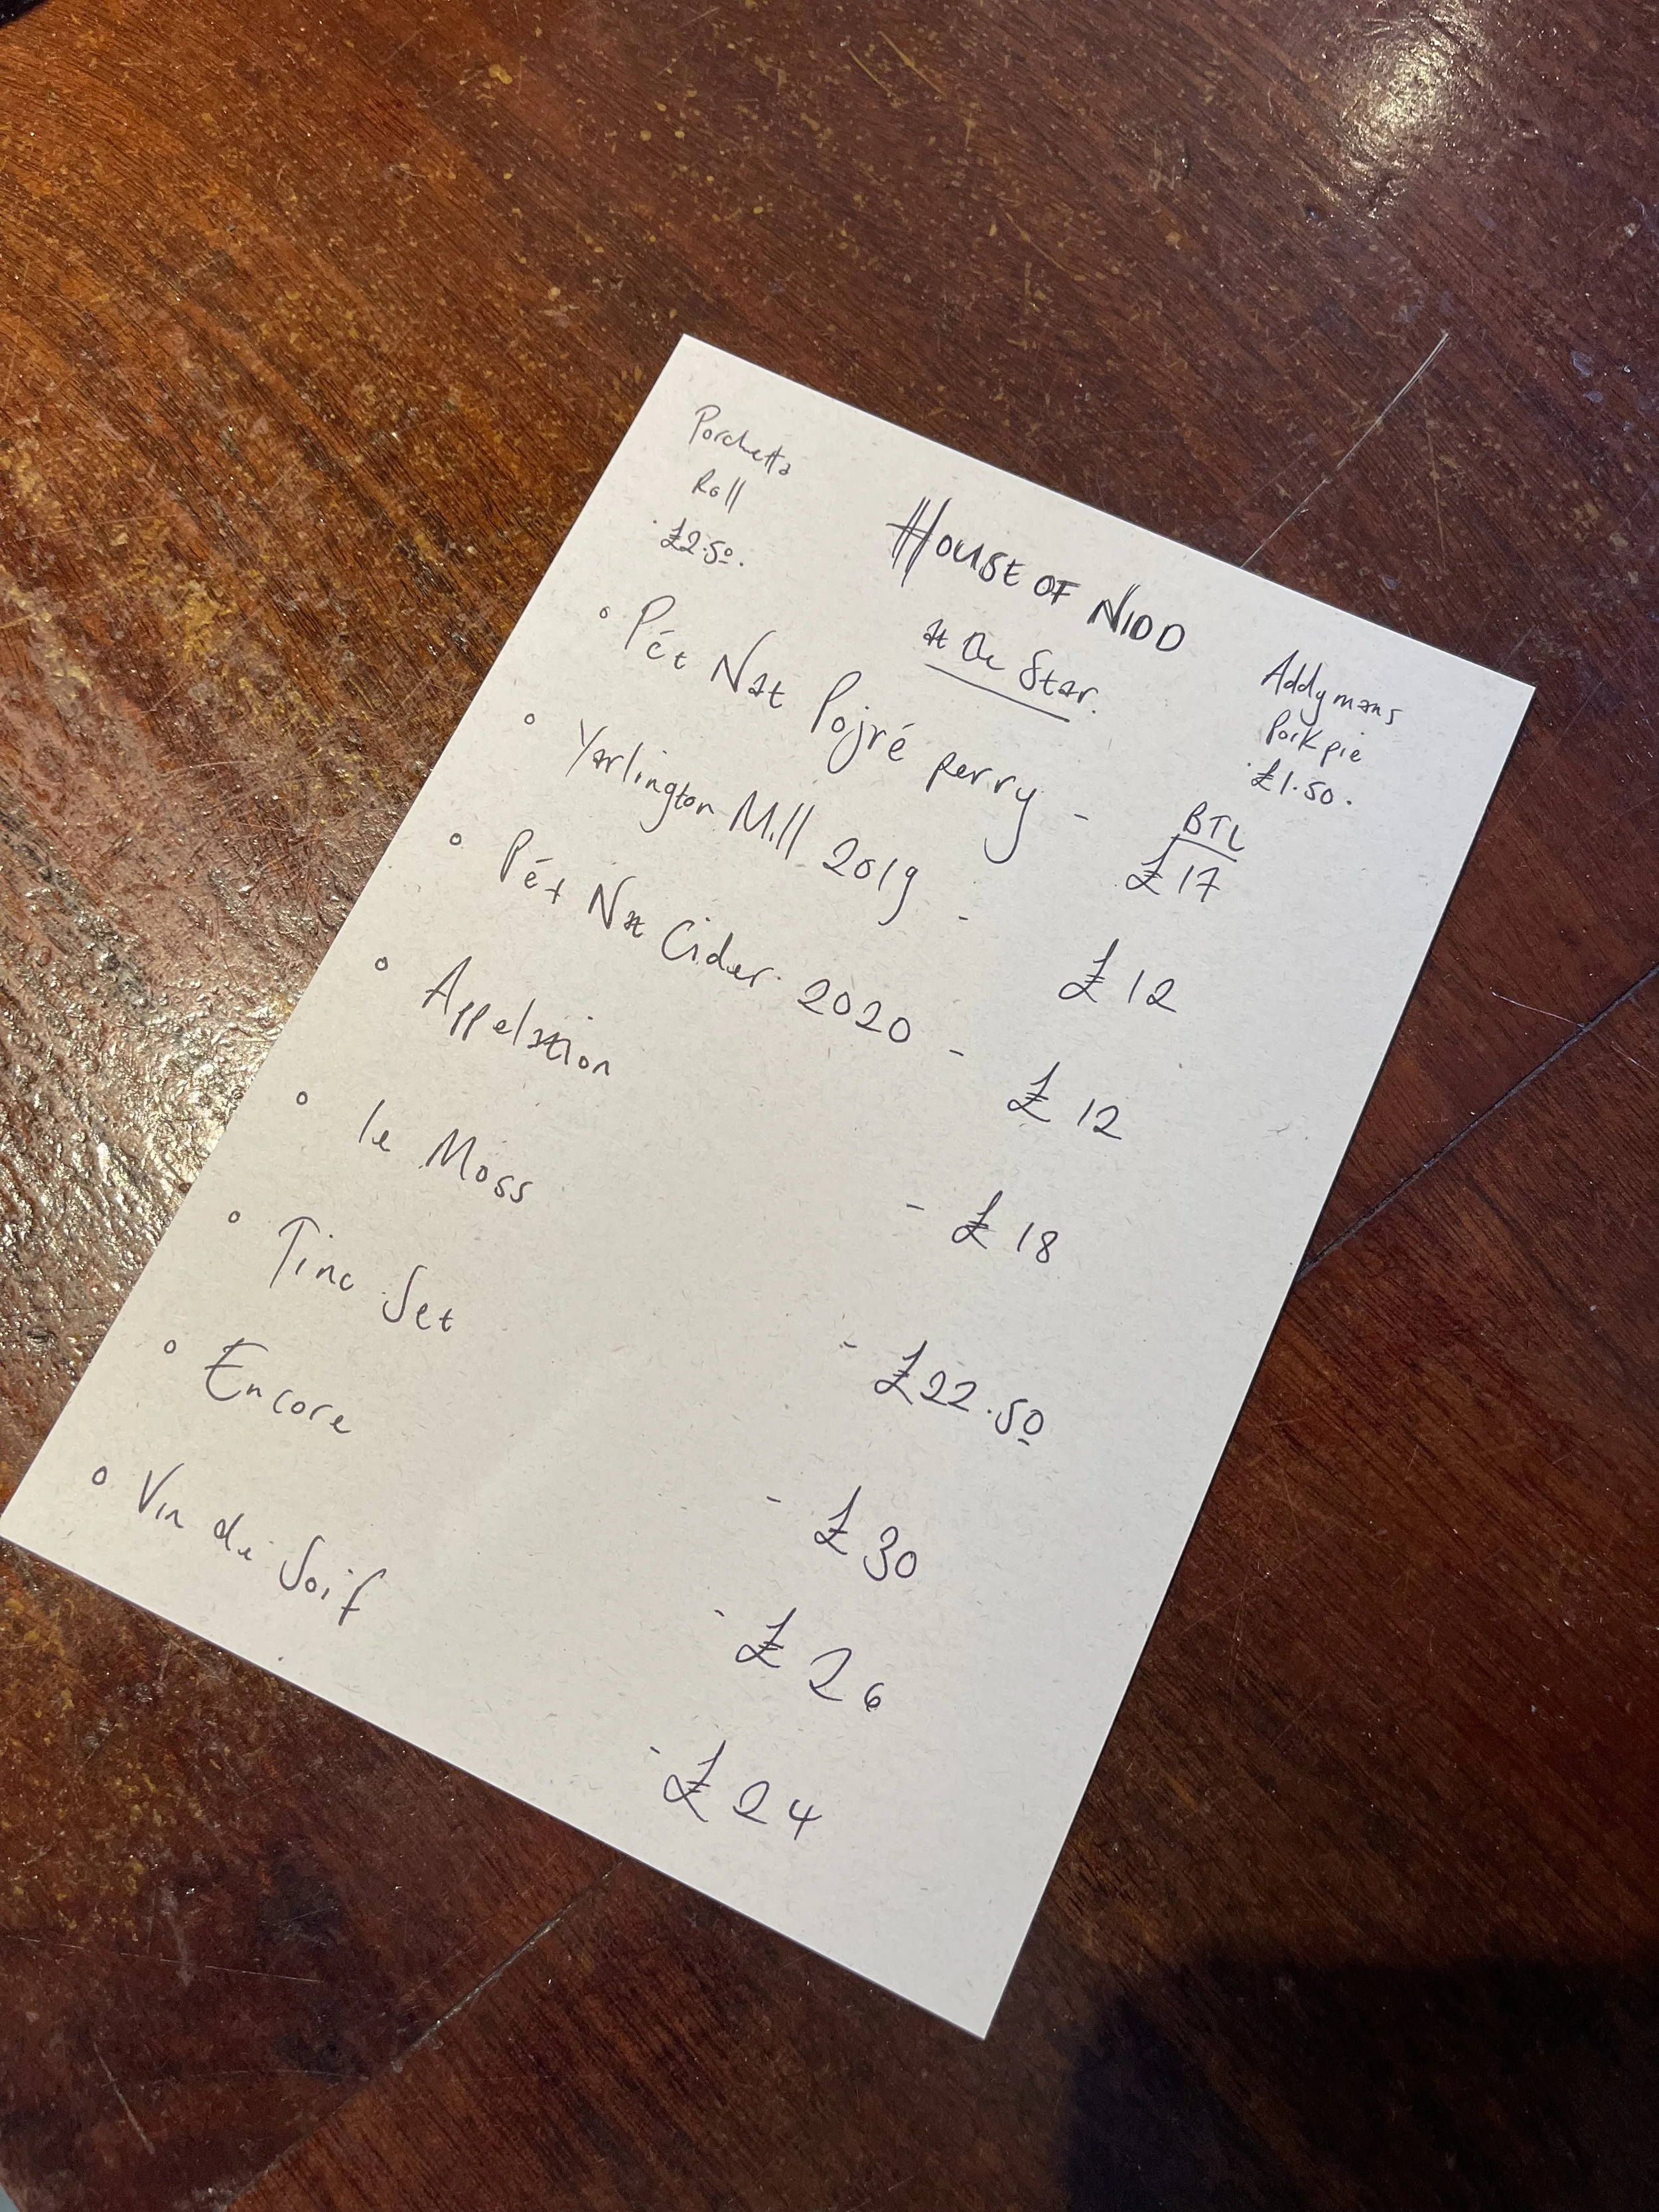 Porchetta
Roll
£2.50.
HOUSE OF NIDD
at the Star.
Addymans
Pork pie
£1.50.
BTL
° Pét Nat Pojré perry - £17
° Yarlington Mill 2019 - £12
° Pét Nat Cider 2020 - £12
° Appelation - £18
° le Moss - £22.50
° Tinc Set - £30
° Encore - £26
° Vin de Soif - £24